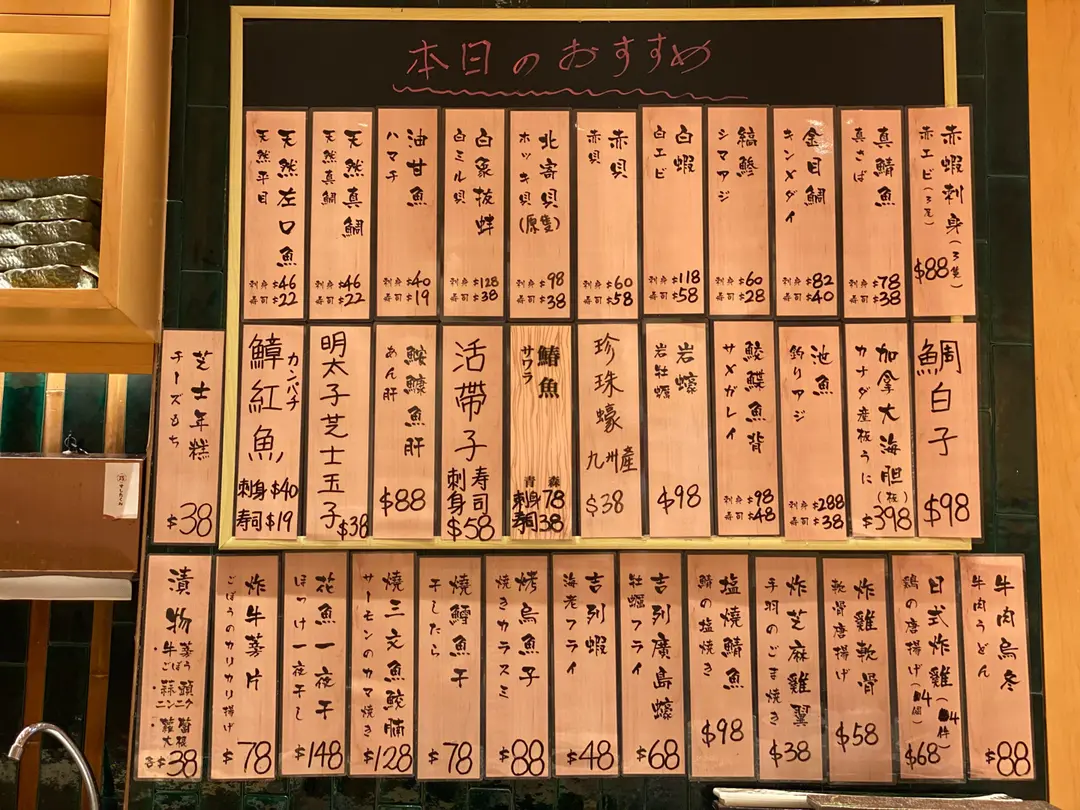 本日のおすすめ
赤蝦刺身(3隻)
赤エビ(3尾)
$88
真鯖魚
真さば
刺身 $78
寿司 $38
金目鯛
キンメダイ
刺身 $82
寿司 $40
縞鯵
シマアジ
刺身 $60
寿司 $28
白蝦
白エビ
刺身 $118
寿司 $58
赤貝
赤貝
刺身 $60
寿司 $58
北寄貝(原隻)
ホッキ貝
刺身 $98
寿司 $38
白象拔蚌
白ミル貝
刺身 $128
寿司 $38
油甘魚
ハマチ
刺身 $40
寿司 $19
天然真鯛
天然真鯛
刺身 $46
寿司 $22
天然左口魚
天然平目
刺身 $46
寿司 $22
鯛白子
$98
加拿大海胆(板)
カナダ産板うに
$398
池魚
釣りアジ
刺身 $288
寿司 $38
鮫鰈魚背
サメガレイ
刺身 $98
寿司 $48
岩蠔
岩牡蠣
$98
珍珠蠔
九州産
$38
鰆魚
サワラ
青森
刺身 78
寿司 38
活帶子
寿司
刺身
$58
鮟鱇魚肝
あん肝
$88
明太子芝士玉子
$38
カンパチ
鱆紅魚
刺身 $40
寿司 $19
芝士年糕
チーズもち
$38
牛肉烏冬
牛肉うどん
$88
日式炸雞(4件)
鶏の唐揚げ(4個)
$68
炸雞軟骨
軟骨唐揚げ
$58
炸芝麻雞翼
手羽のごま焼き
$38
塩燒鯖魚
鯖の塩焼き
$98
吉列廣島蠔
牡蠣フライ
$68
吉列蝦
海老フライ
$48
烤烏魚子
焼きカラスミ
$88
燒鱈魚干
干したら
$78
燒三文魚鮫腩
サーモンのカマ焼き
$128
花魚一夜干
ほっけ一夜干し
$148
炸牛蒡片
ごぼうのカリカリ揚げ
$78
漬物
・牛蒡
ごぼう
・蒜頭
ニンニク
・蘿蔔
大根
各$38